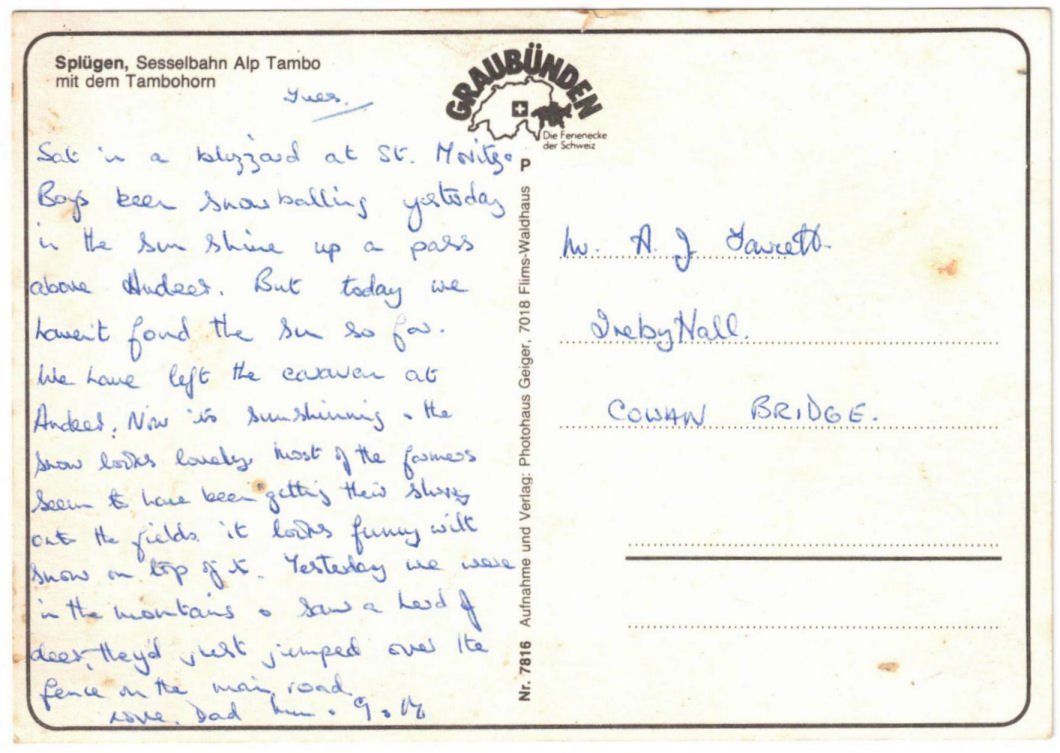 Splügen, Sesselbahn Alp Tambo
mit dem Tambohorn
Tues.
Sat in a blizzard at St. Moritz.
Boys been snowballing yesterday
in the sun shine up a pass
above Andeer. But today we
haven't fond the sun so far.
We have left the caravan at
Andeer. Now its sunshinning & the
snow looks lovely. most of the farmers
seem to have been getting their slurry
onto the fields it looks funny with
snow on top of it. Yesterday we were
in the mountains & saw a herd of
deer, they'd just jumped over the
fence on the main road.
Love. Dad Mum.
GRAUBÜNDEN
Die Ferienecke
der Schweiz
P
Nr. 7816 Aufnahme und Verlag: Photohaus Geiger, 7018 Flims-Waldhaus
Mr. A. J. Fawcett.
Ireby Hall.
COWAN BRIDGE.